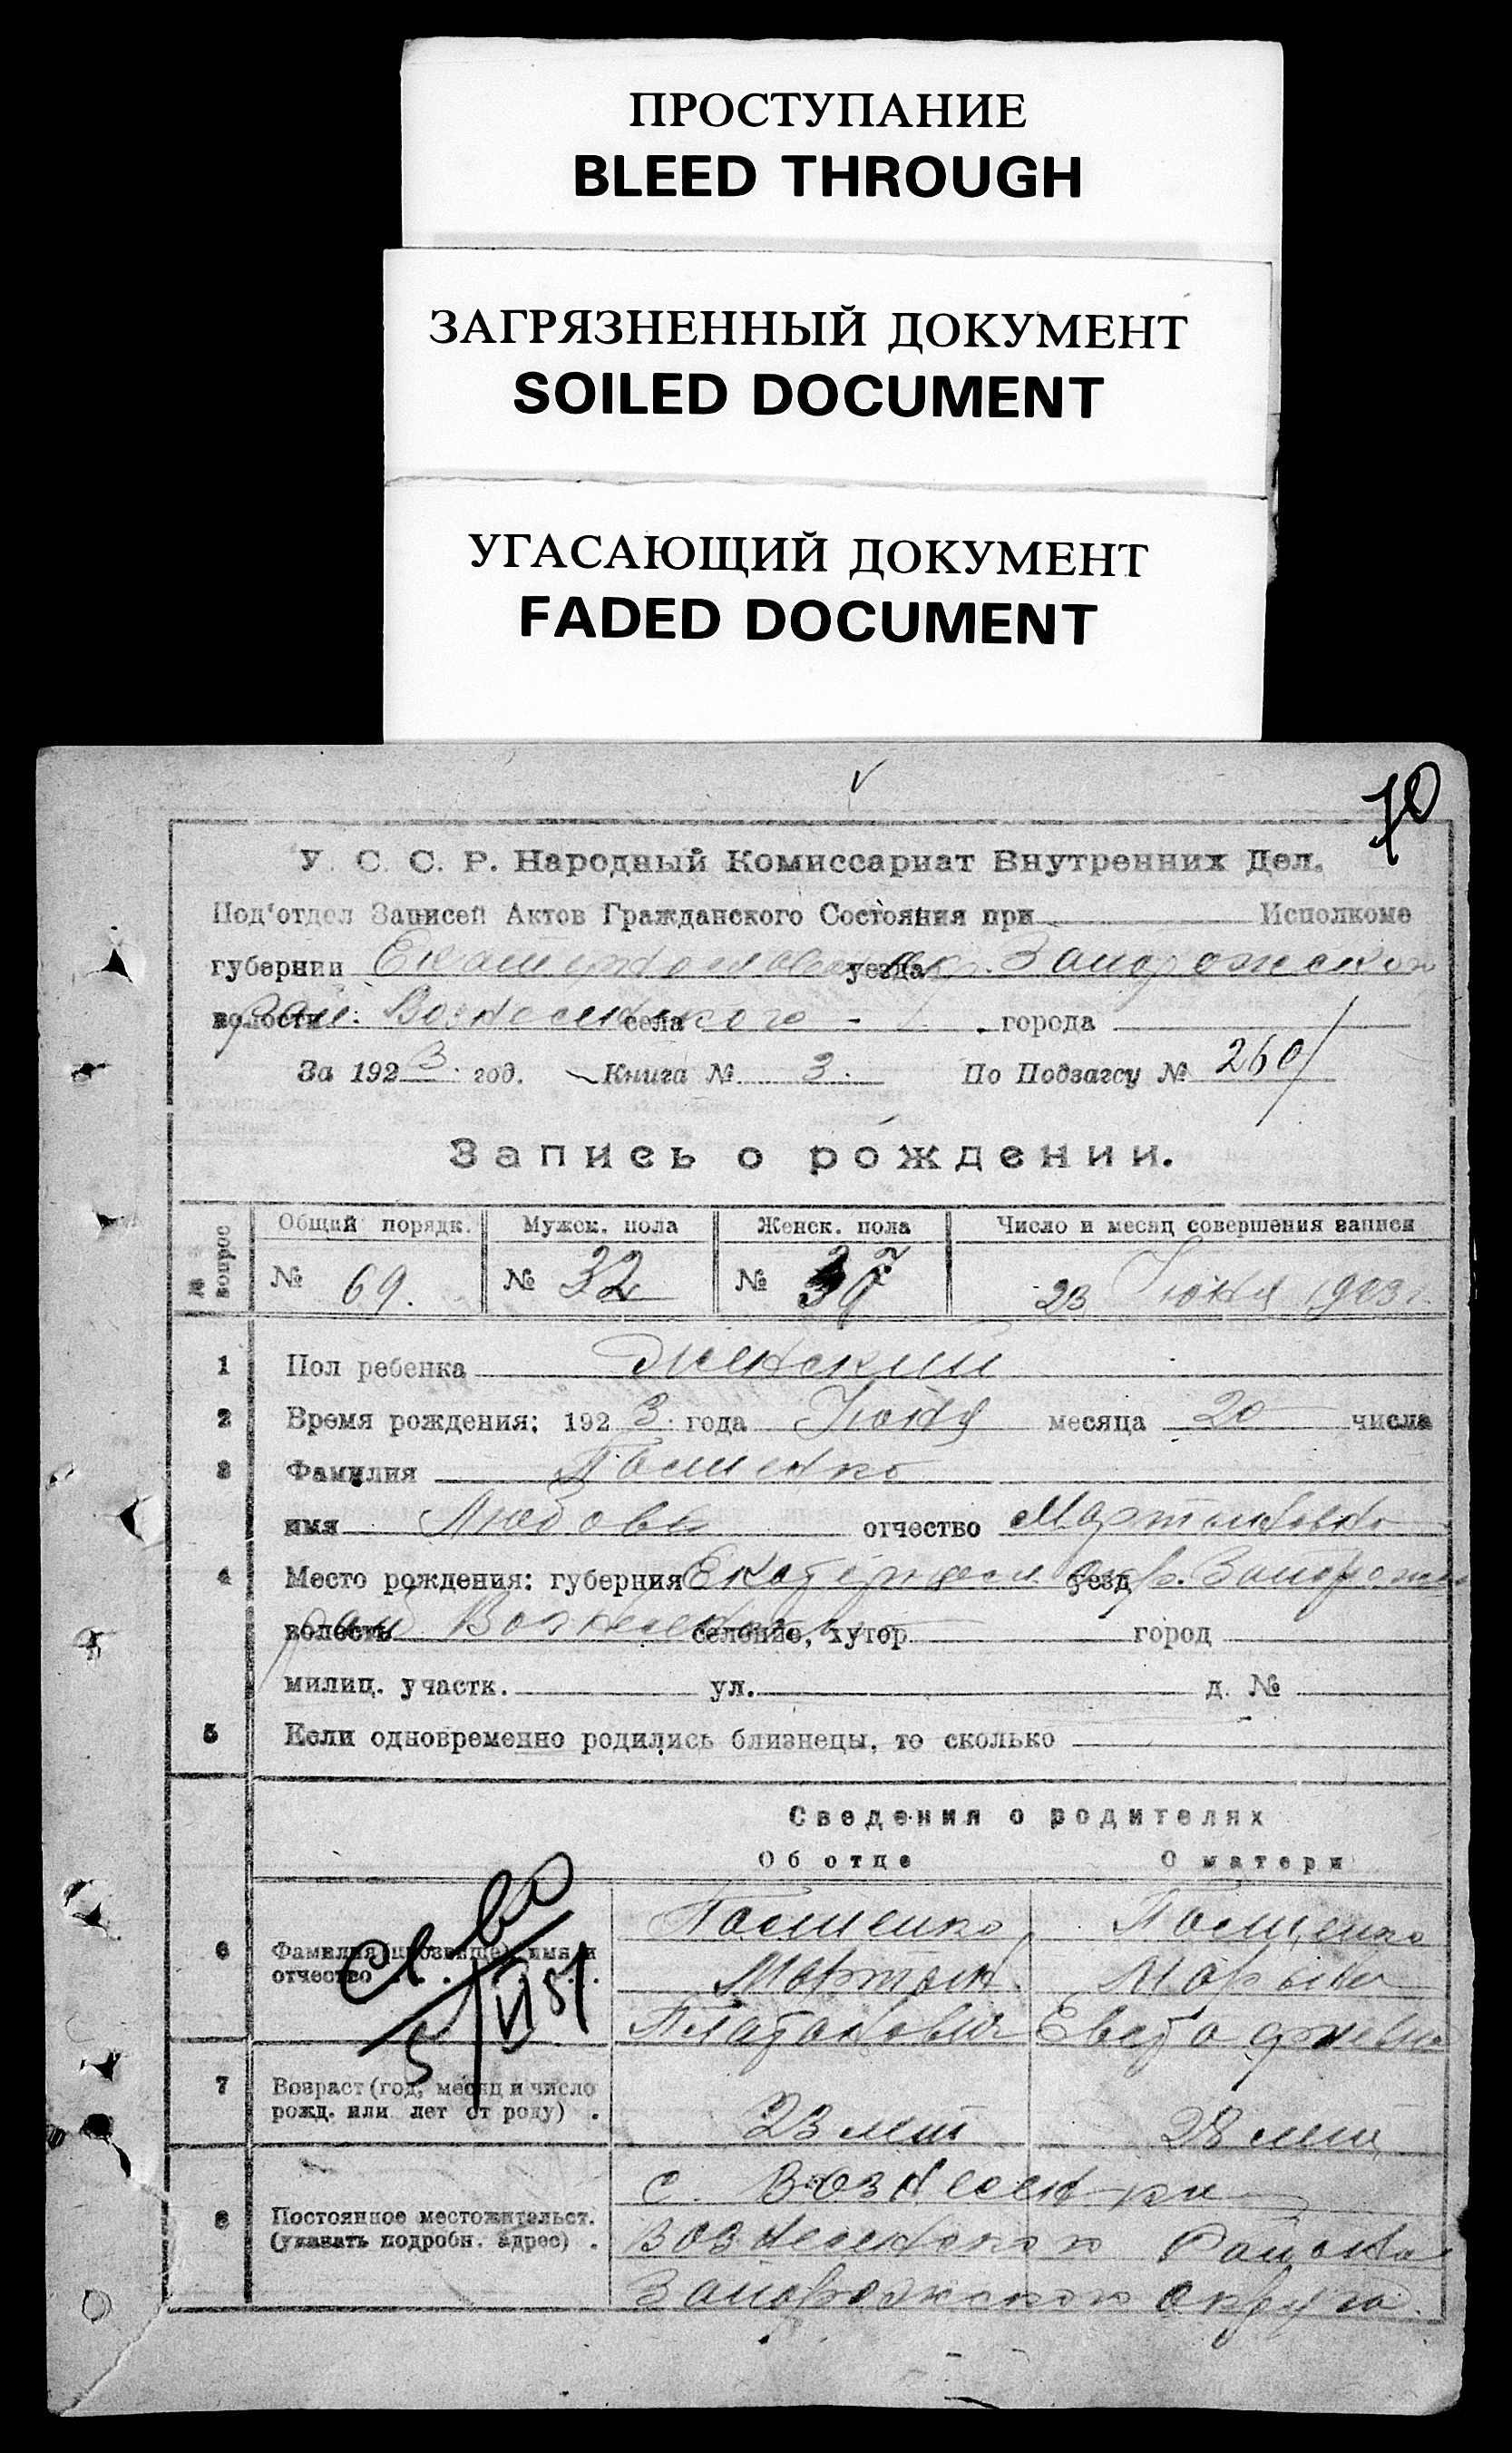 ПРОСТУПАНИЕ
BLEED THROUGH
ЗАГРЯЗНЕННЫЙ ДОКУМЕНТ
SOILED DOCUMENT
УГАСАЮЩИЙ ДОКУМЕНТ
FADED DOCUMENT
70
У. С. С. Р. Народный Комиссариат Внутренних Дел.
Под'отдел Записей Актов Гражданского Состояния при Исполкоме
губернии уезда окр. Запорожского
волости рай. Вознесенского села города
За 1923 год. Книга № 3. По Подзагсу № 260
Запись о рождении.
№ вопрос Общий порядк. Мужск. пола Женск. пола Число и месяц совершения записи
№ 69. № 32 № 37 23 Июня 1923 г.
1 Пол ребенка Женский
2 Время рождения: 1923 года Июня месяца 20 числа
3 Фамилия Пащенко
имя Любовь отчество Мартыновна
4 Место рождения: губерния Екатериносл. уезд окр. Запорожс
волость рай селение, хутор город
милиц. участк. ул. д. №
5 Если одновременно родились близнецы, то сколько
Сведения о родителях
Об отце О матери
6 Фамилия (прозвище), имя и отчество Пащенко Пащенко
Мартын Марына
7 Возраст (год, месяц и число рожд. или лет от роду) . 23 лет 28 лет
с. Вознесенки
8 Постоянное местожительст. (указать подробн. адрес) . Вознесенского Района
Запорожского округа.